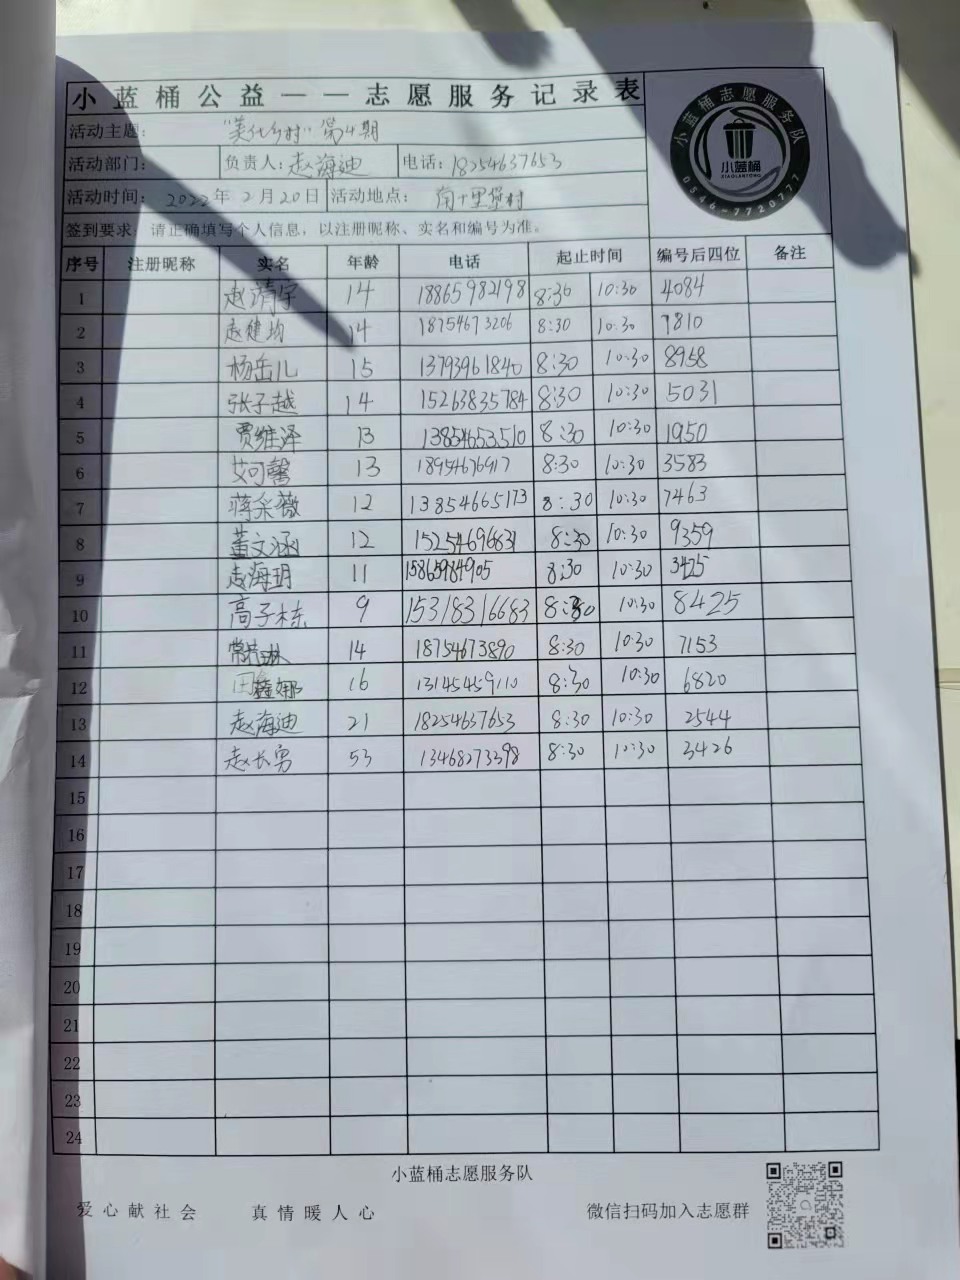 小蓝桶公益——志愿服务记录表
活动主题： "美化乡村"第4期
活动部门： 负责人：赵海迪 电话：18254637653
活动时间： 2022年2月20日 活动地点： 南十里堡村
签到要求：请正确填写个人信息，以注册昵称、实名和编号为准。
小蓝桶志愿服务队
小蓝桶
XIAOLANTONG
0546-7720777
序号 注册昵称 实名 年龄 电话 起止时间 编号后四位 备注
1 赵清宇 14 18865982198 8:30 10:30 4084
2 赵健均 14 18754673206 8:30 10:30 7810
3 杨岳儿 15 13793961840 8:30 10:30 8958
4 张子越 14 15263835784 8:30 10:30 5031
5 贾维泽 13 13854653510 8:30 10:30 1950
6 艾可馨 13 18954676917 8:30 10:30 3583
7 蒋采薇 12 13854665173 8:30 10:30 7463
8 董文涵 12 15254696831 8:30 10:30 9359
9 赵海玥 11 15865984905 8:30 10:30 3425
10 高子栋 9 15318316683 8:30 10:30 8425
11 14 18754673890 8:30 10:30 7153
12 田鑫娜 16 13145459110 8:30 10:30 6820
13 赵海迪 21 18254637653 8:30 10:30 2544
14 赵长勇 53 13468273398 8:30 10:30 3426
15
16
17
18
19
20
21
22
23
24
小蓝桶志愿服务队
爱心献社会 真情暖人心 微信扫码加入志愿群